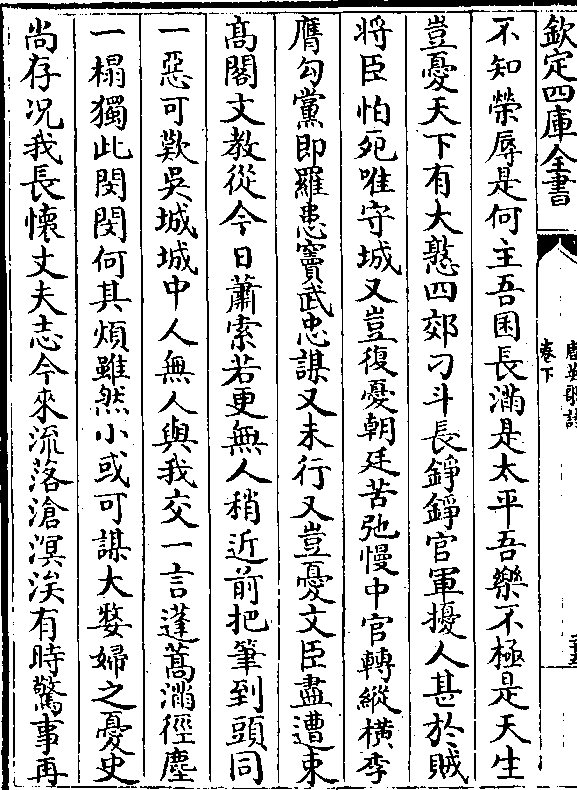 欽定四庫全書
卷下
不知榮辱是何主吾囷長滿是太平吾樂不極是天生
豈憂天下有大憝四郊刁斗長錚錚官軍擾人甚於賊
將臣怕死唯守城又豈復憂朝廷苦弛慢中官轉縱橫李
膺勾黨即羅患竇武忠謀又未行又豈憂文臣盡遭束
髙閣文教從今日蕭索若更無人稍近前把筆到頭同
一惡可歎吳城城中人無人與我交一言蓬蒿滿徑塵
一榻獨此閔閔何其煩雖然小或可謀大嫠婦之憂史
尚存况我長懷丈夫志今來流落滄溟涘有時驚事再